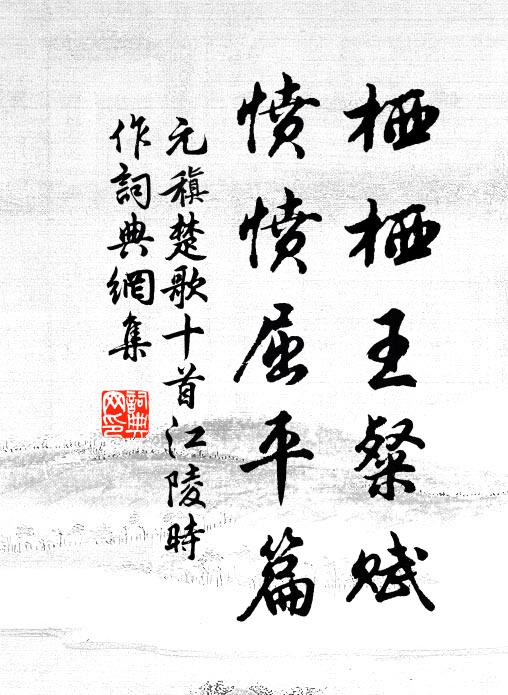 栖栖王粲赋
愤愤屈平篇
元稹楚歌十首江陵時
作詞典網集
詞典網印